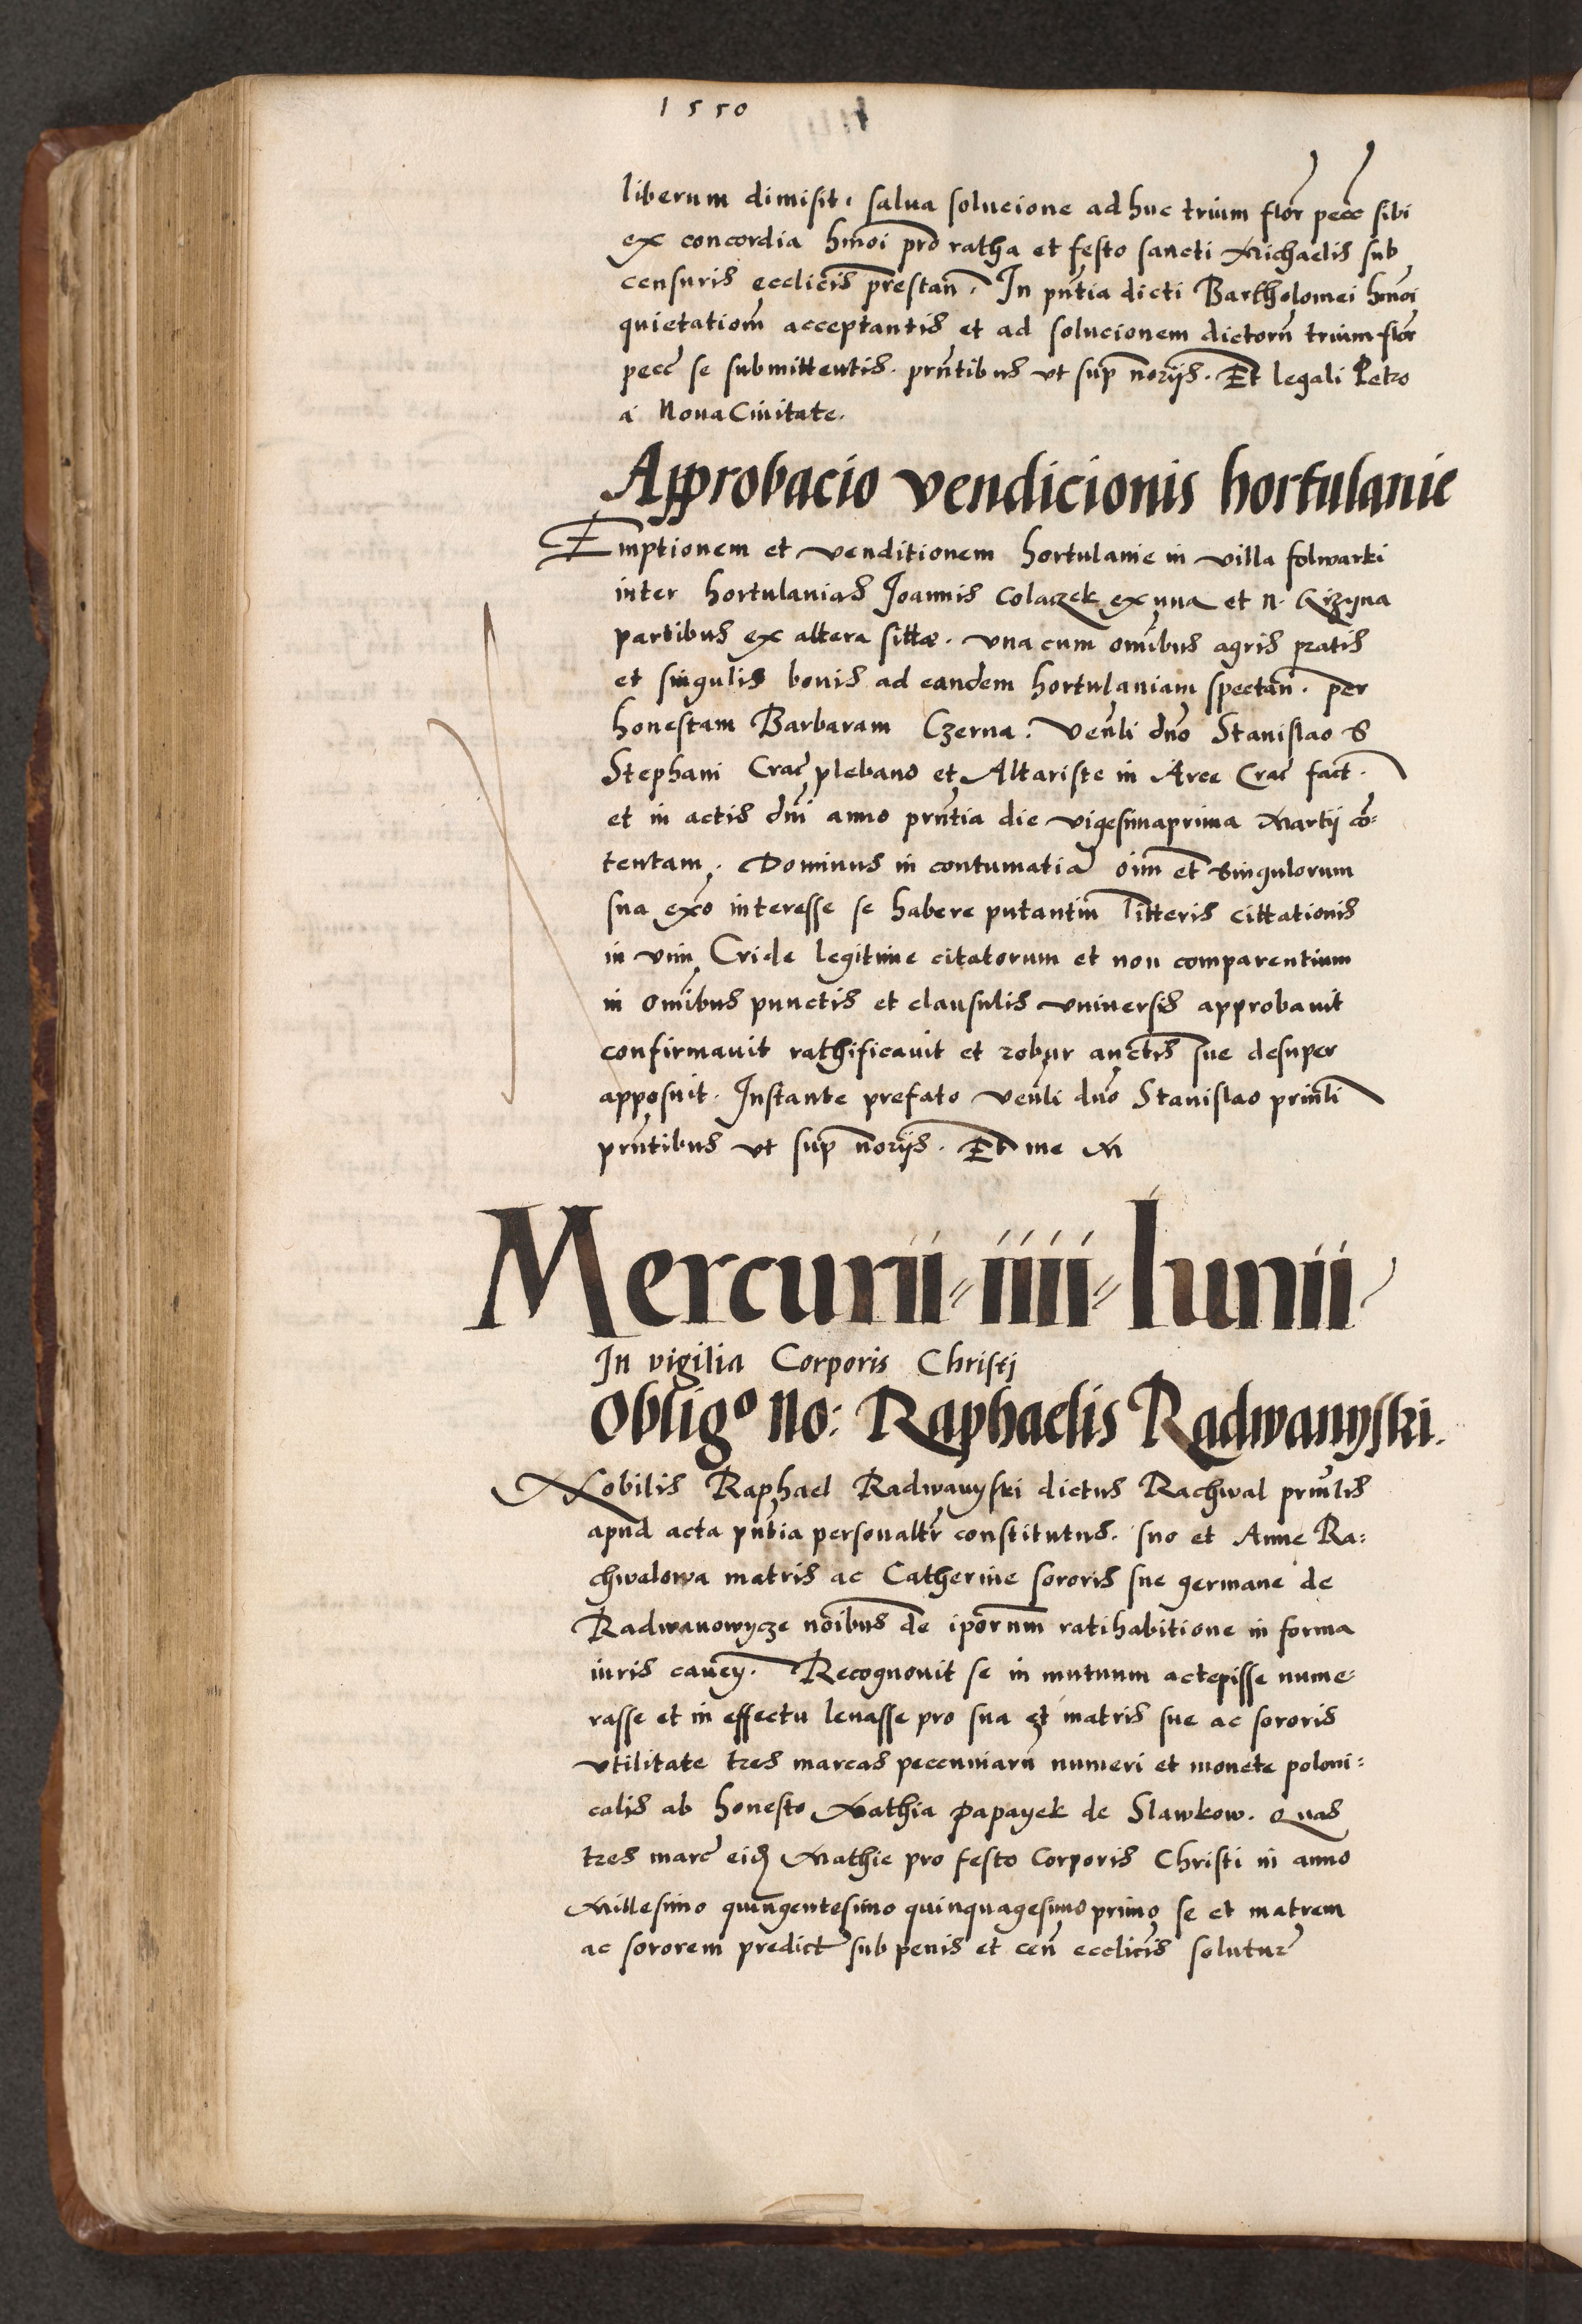 1550
liberum dimisit. salua solucione adhuc trium flor pecc sibi
ex concordia hmoi pro ratha et festo sancti Michaelis sub
censuris ecclicis prestan. In pntia dicti Bartholomei hmoi
quietationem acceptantis et ad solucionem dictoru trium flor
pecc se submittentis. prntibus vt sup noriis. Et legali Petro
a Noua Ciuitate.
Approbacio vendicionis hortulanie
Emptionem et venditionem hortulanie in villa folwarki
inter hortulanias Joannis Colaczek ex una et n. Krzyna
partibus ex altera sittæ. vna cum omibus agris pratis
et singulis bonis ad eandem hortulaniam spectan. per
honestam Barbaram Czerna. Venli dno Stanislao S
Stephani Crac plebano et Altariste in Arce Crac fact.
et in actis dni anno prntia die vigesimaprima Martij co-
tentam. Dominus in contumatia oim et singulorum
sua exo interesse se habere putantiu litteris cittationis
in vim Cride legitime citatorum et non comparentium
in omibus punctis et clausulis vniuersis approbauit
confirmauit rathificauit et robur auctis sue desuper
apposuit. Instante prefato Venli dno Stanislao prinli
prntibus vt sup noriis. Et me M
Mercurii iiii Iunii
In vigilia Corporis Christi
Obligo No: Raphaelis Radwanyski.
Nobilis Raphael Radwanyski dictus Rachwal prinlis
apud acta pntia personaltr constitutus. suo et Anne Ra-
chwalowa matris ac Catherine sororis sue germane de
Radwanowycze noibus de iporum ratihabitione in forma
iuris cauen. Recognouit se in mutuum accepisse nume-
rasse et in effectu leuasse pro sua et matris sue ac sororis
vtilitate tres marcas peccuniaru numeri et monete poloni-
calis ab honesto Mathia Papayek de Slawkow. Quas
tres marc eid Mathie pro festo Corporis Christi in anno
Millesimo quingentesimo quinquagesimo primo se et matrem
ac sororem predict sub penis et cen ecclicis solutur